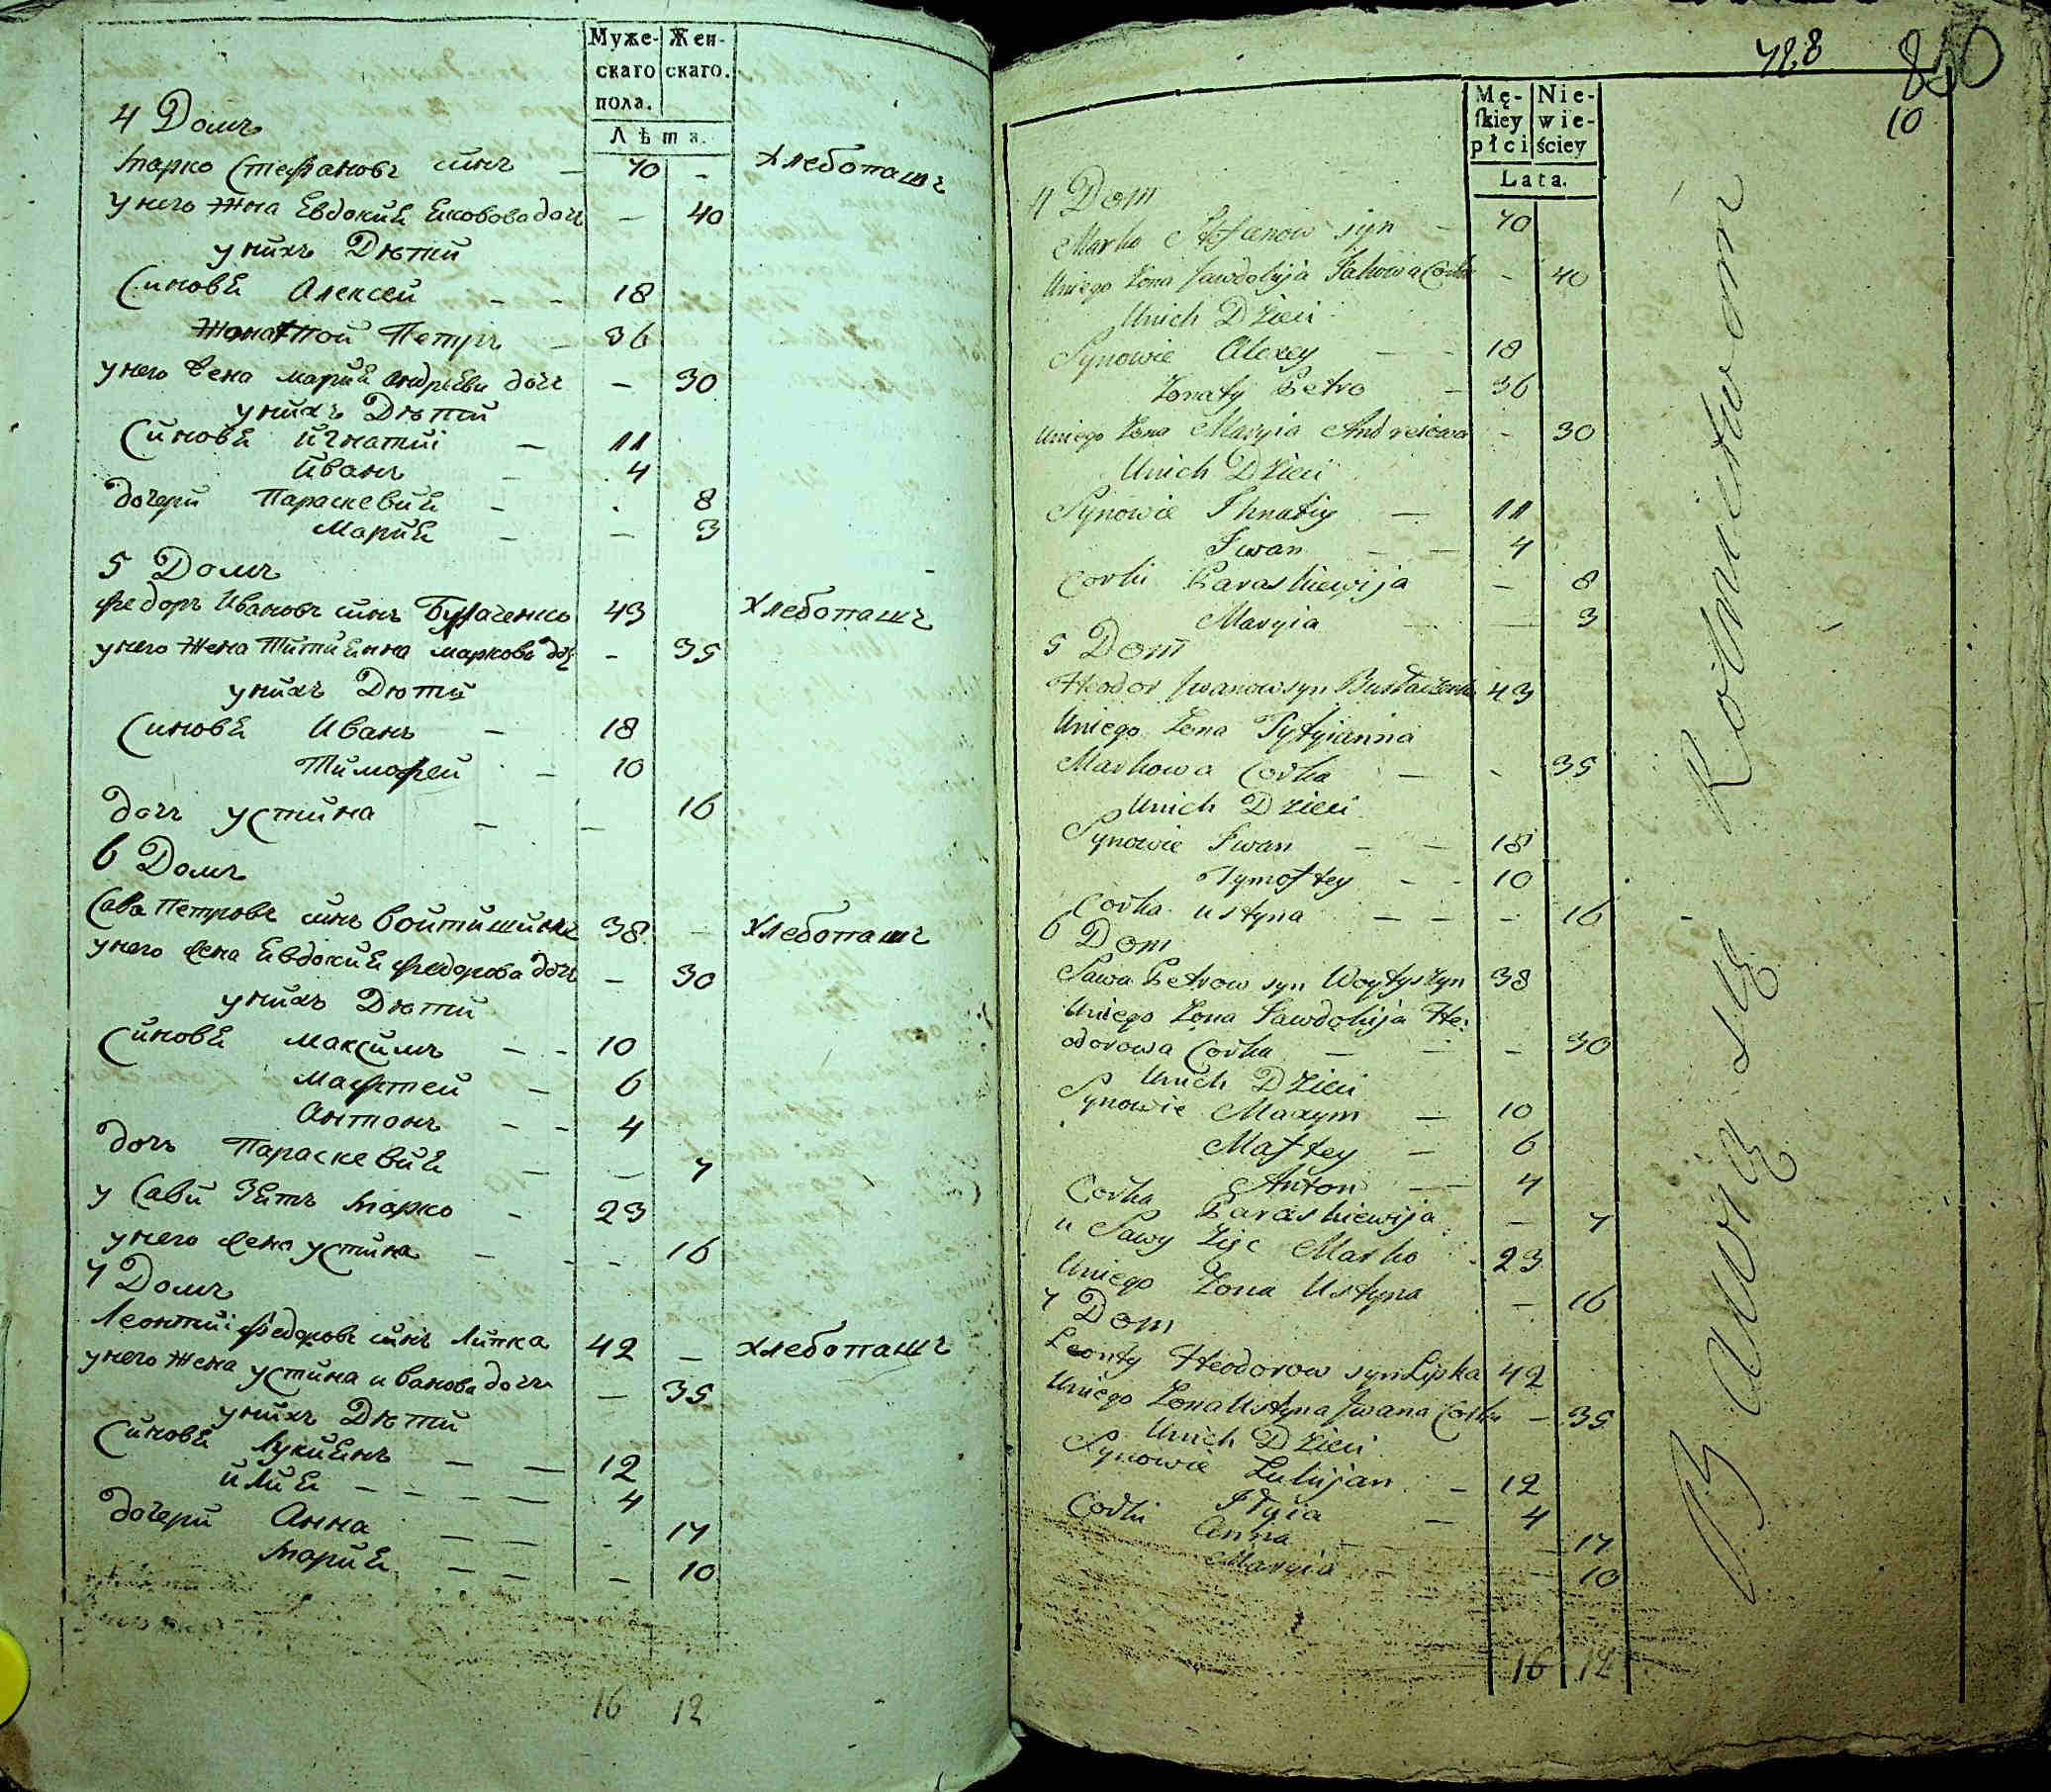 Муже- Жен-
скаго скаго.
пола.
Лѣта.
4 Домъ
Марко Стефановъ синъ — 70 — хлебопашъ
у него Жна Евдокия Яковова дочъ — 40
у нихъ Дѣти
Синовя Алексей — — 18
Жонатной Петръ — 36
у него жена Мария Андрѣева дочъ — 30
у нихъ Дѣти
Синовя Игнатий — 11
Иванъ — 4
дочери Параскевия — 8
Мария — — 3
5 Домъ
Федоръ Ивановъ синъ Бурлаченко 43 хлебопашъ
у него Жена Титиянна Маркова доч — 35
у нихъ Дѣти
Синовя Иванъ — 18
Тимофей — 10
дочъ Устина — — 16
6 Домъ
Сава Петровъ синъ Войтишинъ 38 — хлебопашъ
у него жена Евдокия Федорова дочъ — 30
у нихъ Дѣти
Синовя Максимъ — — 10
Мафтей — 6
Антонъ — — 4
дочъ Параскевия — — 7
у Сави Зять Марко — 23
у него жена Устина — — — 16
7 Домъ
Леонтий Федоровъ синъ Липка 42 — хлебопашъ
у него Жена Устина Иванова дочъ — 35
у нихъ Дѣти
Синовя Лукиянъ — — 12
Илия — — — — 4
дочери Анна — — 17
Мария — — — 10
16 12
728 810
10
Mę- Nie-
ſkiey wie-
płci ściey
Lata.
4 Dom
Marko Stefanow syn — 70
Uniego Żona Jawdokija Jakowa Corka — 40
Unich Dzieci
Synowie Alexey — — 18
Żonaty Petro — 36
Uniego Żona Maryia Andreiewa — 30
Unich Dzieci
Synowie Ihnatiy — 11
Iwan — — 4
Corki Paraskiewija — 8
Maryia — — 3
5 Dom
Heodor Iwanow syn Burłaczenko 43
Uniego Żona Tytyianna
Markowa Corka — — 35
Unich Dzieci
Synowie Iwan — — 18
Tymoftey — — 10
Corka Ustyna — — — 16
6 Dom
Sawa Petrow syn Woytyszyn 38
Uniego Żona Jawdokija He:
odorowa Corka — — — 30
Unich Dzieci
Synowie Maxym — 10
Maftey — 6
Anton — — 4
Corka Paraskiewija — 7
u Sawy Zięc Marko 23
Uniego Żona Ustyna — 16
7 Dom
Leonty Heodorow syn Lipka 42
Uniego Żona Ustyna Iwana Corka — 35
Unich Dzieci
Synowie Lukijan — 12
Iłyia — 4
Corki Anna — 17
Maryia — — 10
16 12
Bawią się Rolnictwem